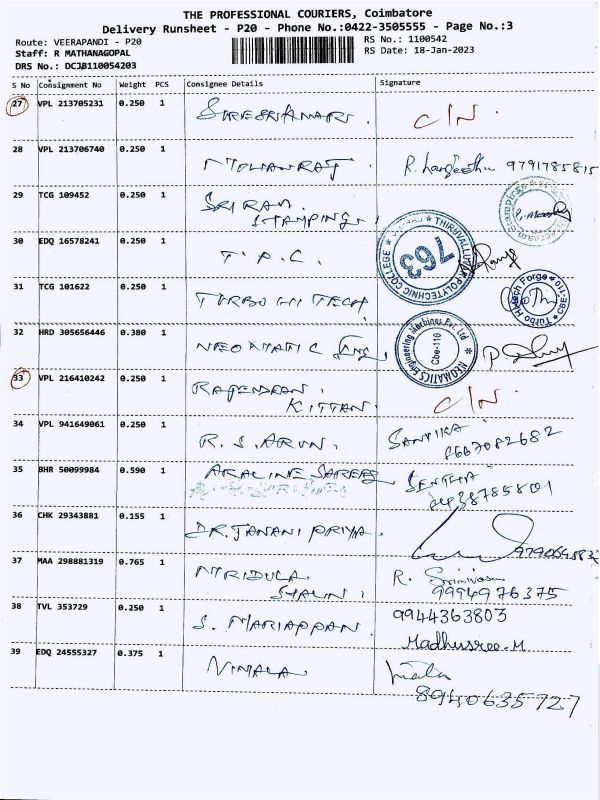 THE PROFESSIONAL COURIERS, Coimbatore
Delivery Runsheet - P20 - Phone No.:0422-3505555 - Page No.:3
Route: VEERAPANDI - P20
RS No.: 1100542
Staff: R MATHANAGOPAL
RS Date: 18-Jan-2023
DRS No.: DCJB110054203
S No Consignment No Weight PCS Consignee Details Signature
27 VPL 213705231 0.250 1 C/N.
28 VPL 213706740 0.250 1 MOHANRAJ 9791785815
29 TCG 109452 0.250 1 SRI RAM
STAMPINGS
30 EDQ 16578241 0.250 1 T.P.C.
THIRUVALLUVAR POLYTECHNIC COLLEGE
763
31 TCG 101622 0.250 1 TURBO HI TECH
Turbo Hitech Forge
CBE-110
32 HRD 305656446 0.380 1 NEOMATIC Eng
NEOMATICS Engineering Machines Pvt. Ltd
Cbe-110
33 VPL 216410242 0.250 1 RAJENDRAN C/N.
KITTAN
34 VPL 941649061 0.250 1 R.S. ARUN.
8667082682
35 BHR 50099984 0.590 1 SAREES
36 CHK 29343881 0.155 1 DR. JANANI PRIYA
37 MAA 298881319 0.765 1 MRIDULA R. Srinivasan
STALIN 9994976375
38 TVL 353729 0.250 1 S. MARIAPPAN 9944363803
Madhusree.M
39 EDQ 24555327 0.375 1 NIMALA
89440635727